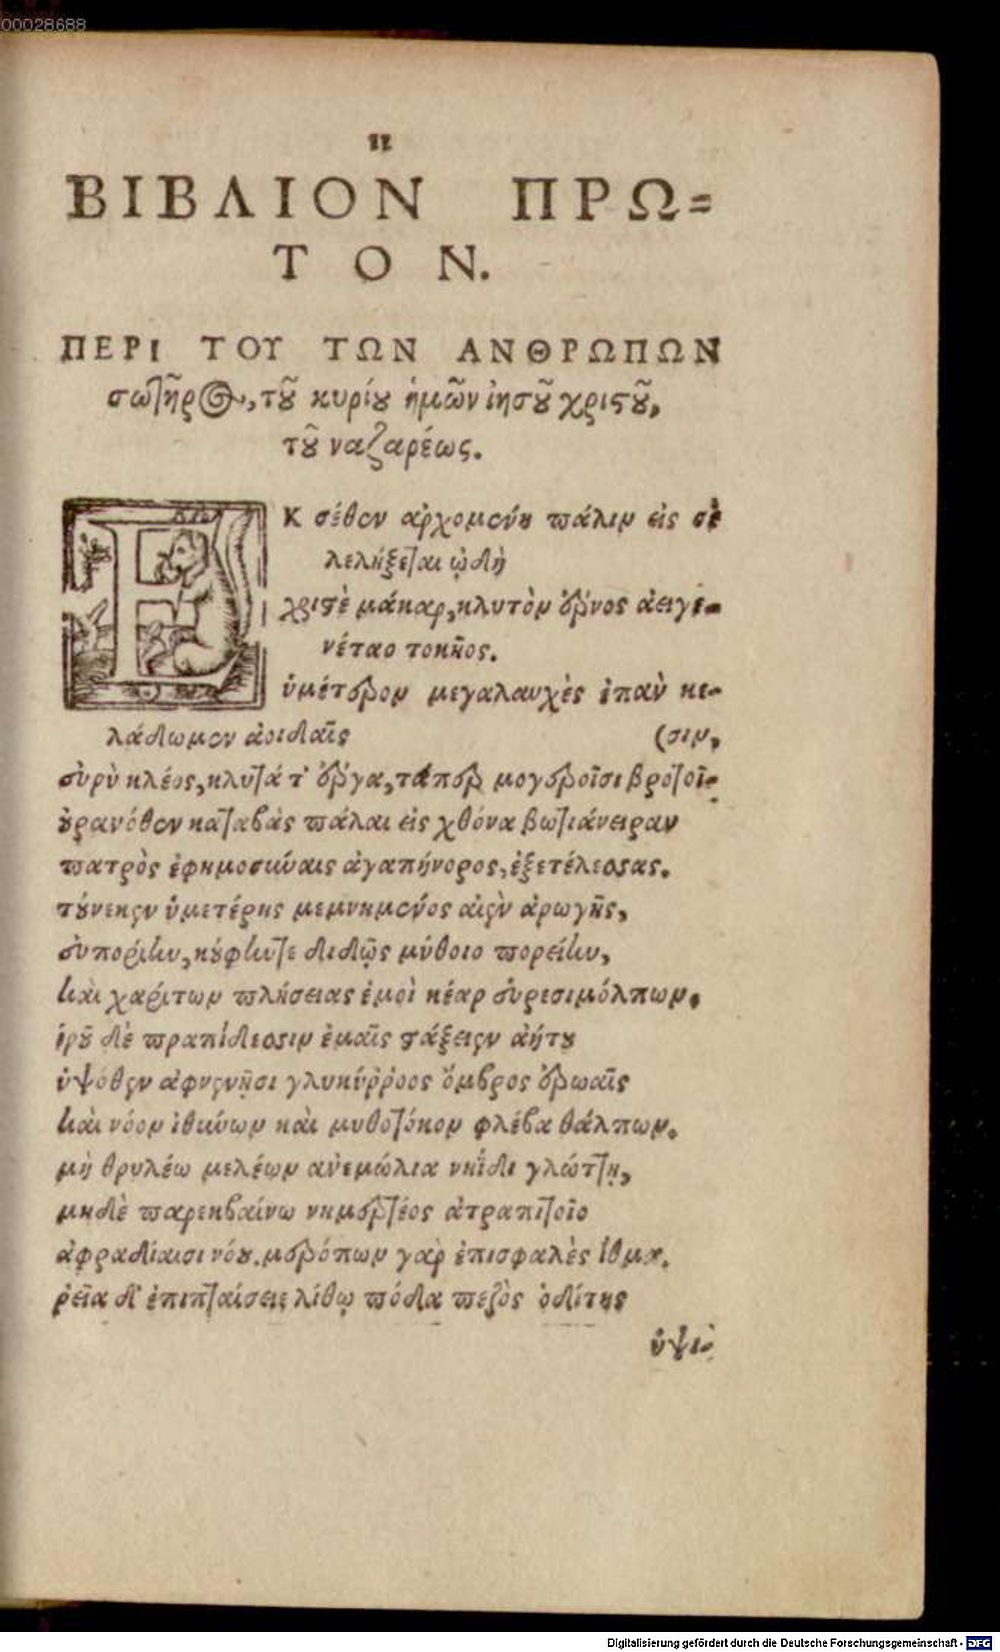 00028688
11
ΒΙΒΛΙΟΝ ΠΡΩ=
ΤΟΝ.
ΠΕΡΙ ΤΟΥ ΤΩΝ ΑΝΘΡΩΠΩΝ
σωτῆρος, τοῦ κυρίου ἡμῶν ἰησοῦ χριστοῦ,
τοῦ ναζαρέως.
ΕΚ σέθεν ἀρχομένου πάλιν εἰς σὲ
λελήξεται ᾠδὴ
χριστὲ μάκαρ, κλυτὸν ἔρνος ἀειγε-
νέταο τοκῆος.
ὑμέτερον μεγαλαυχὲς ἐπὰν κε-
λάδωμεν ἀοιδαῖς (σιν,
εὐρὺ κλέος, κλυτά τ' ἔργα, τάπερ μογεροῖσι βροτοῖ-
οὐρανόθεν καταβὰς πάλαι εἰς χθόνα βωτιάνειραν
πατρὸς ἐφημοσύναις ἀγαπήνορος, ἐξετέλεσσας.
τούνεκεν ὑμετέρης μεμνημένος αἰὲν ἀρωγῆς,
εὐπορίην, κούφην τε διδῷς μύθοιο πορείην,
καὶ χαρίτων πλήσειας ἐμοὶ κέαρ εὐρεσιμόλπων.
ἱροῦ δὲ πραπίδεσσιν ἐμαῖς στάξειεν ἀήτου
ὑψόθεν ἀφνενῇσι γλυκύῤῥοος ὄμβρος ἐρωαῖς
καὶ νόον ἰθύνων καὶ μυθοτόκον φλέβα θάλπων.
μὴ θρυλέω μελέων ἀνεμώλια νηΐδι γλώττῃ,
μηδὲ παρεκβαίνω νημερτέος ἀτραπιτοῖο
ἀφραδίαισι νόου. μερόπων γὰρ ἐπισφαλὲς ἴθμα.
ῥεῖα δ' ἐπιπταίσειε λίθῳ πόδα πεζὸς ὁδίτης
ὑψι-
Digitalisierung gefördert durch die Deutsche Forschungsgemeinschaft - DFG